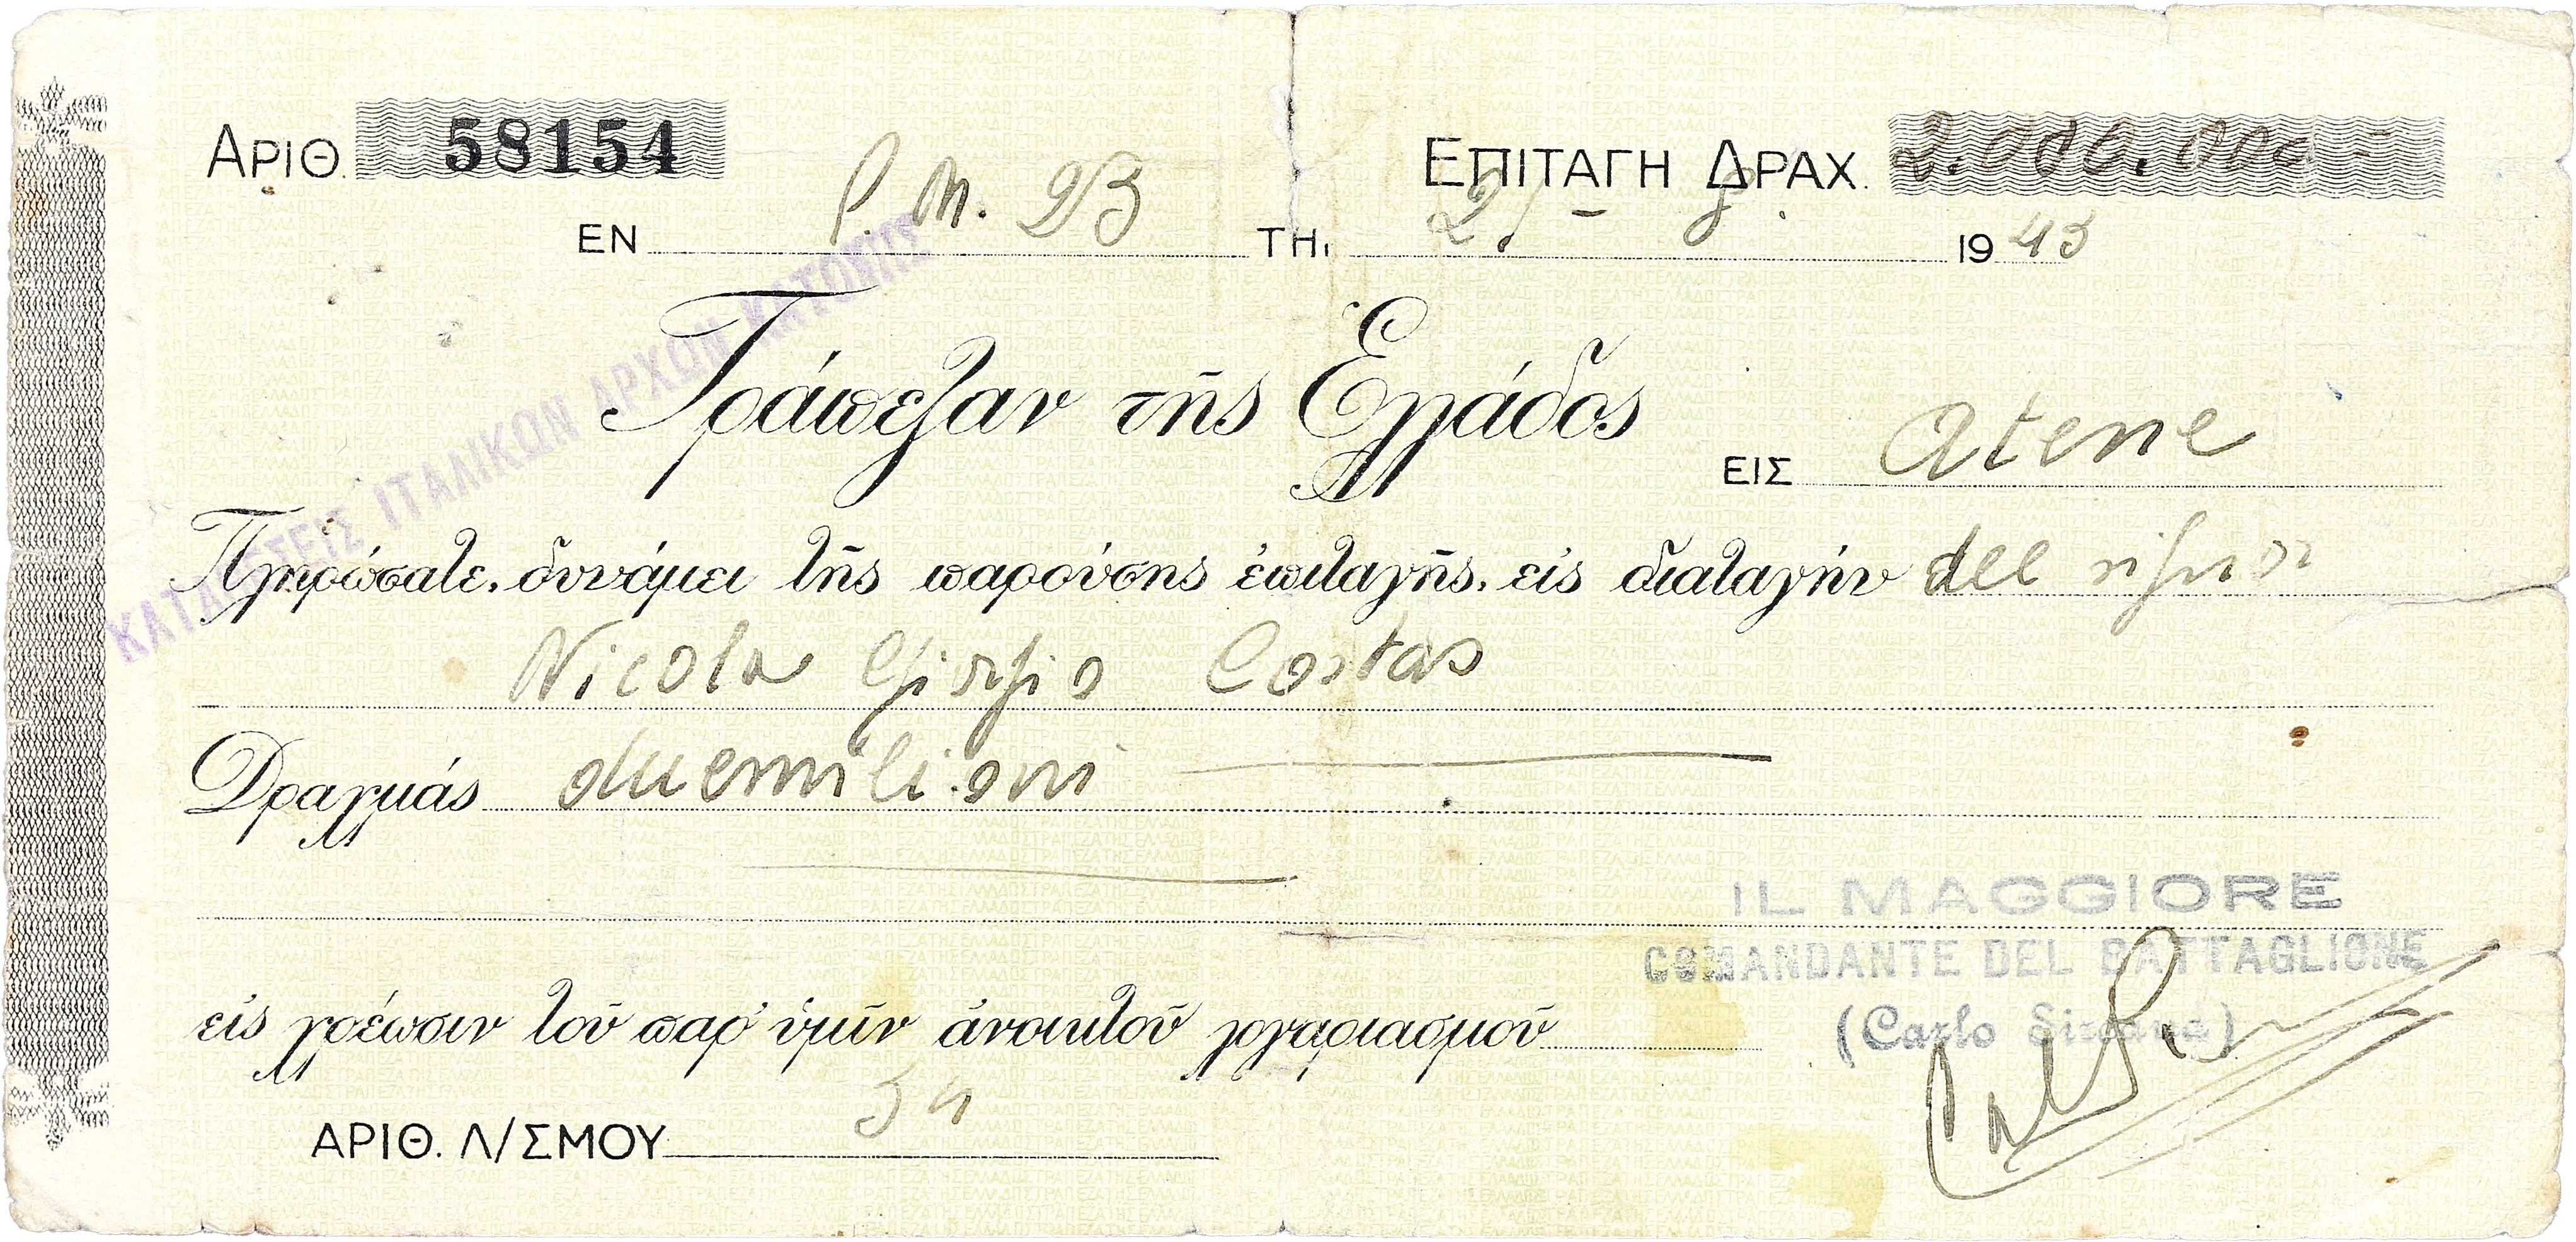 ΑΡΙΘ. 58154
ΕΠΙΤΑΓΗ ΔΡΑΧ. 2.000.000 -
ΕΝ P. M. 23 ΤΗι 21 - 8. 1943
Τράπεζαν τῆς Ἑλλάδος
ΕΙΣ Atene
ΚΑΤΑΘΕΣΕΙΣ ΙΤΑΛΙΚΩΝ ΑΡΧΩΝ ΚΑΤΟΧΗΣ
Πληρώσατε, δυνάμει τῆς παρούσης ἐπιταγῆς, εἰς διαταγήν del signor
Nicola Giorgio Costas
Δραχμάς duemilioni
IL MAGGIORE
COMANDANTE DEL BATTAGLIONE
(Carlo Sircana)
εἰς χρέωσιν τοῦ παρ' ὑμῖν ἀνοικτοῦ λογαριασμοῦ
ΑΡΙΘ. Λ/ΣΜΟΥ 54